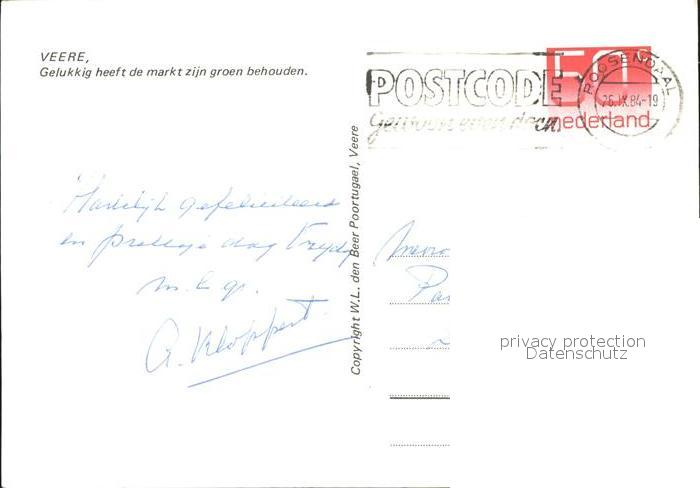 VEERE,
Gelukkig heeft de markt zijn groen behouden.
POSTCODE
Gewoon even doen.
50
nederland
ROOSENDAAL
26.IX.84-19
Hartelijk gefeliciteerd
en prettige dag Vrijdag
m.v.g.
A. Kloppert.
Copyright W.L. den Beer Poortugael, Veere
Mevro
privacy protection
Datenschutz